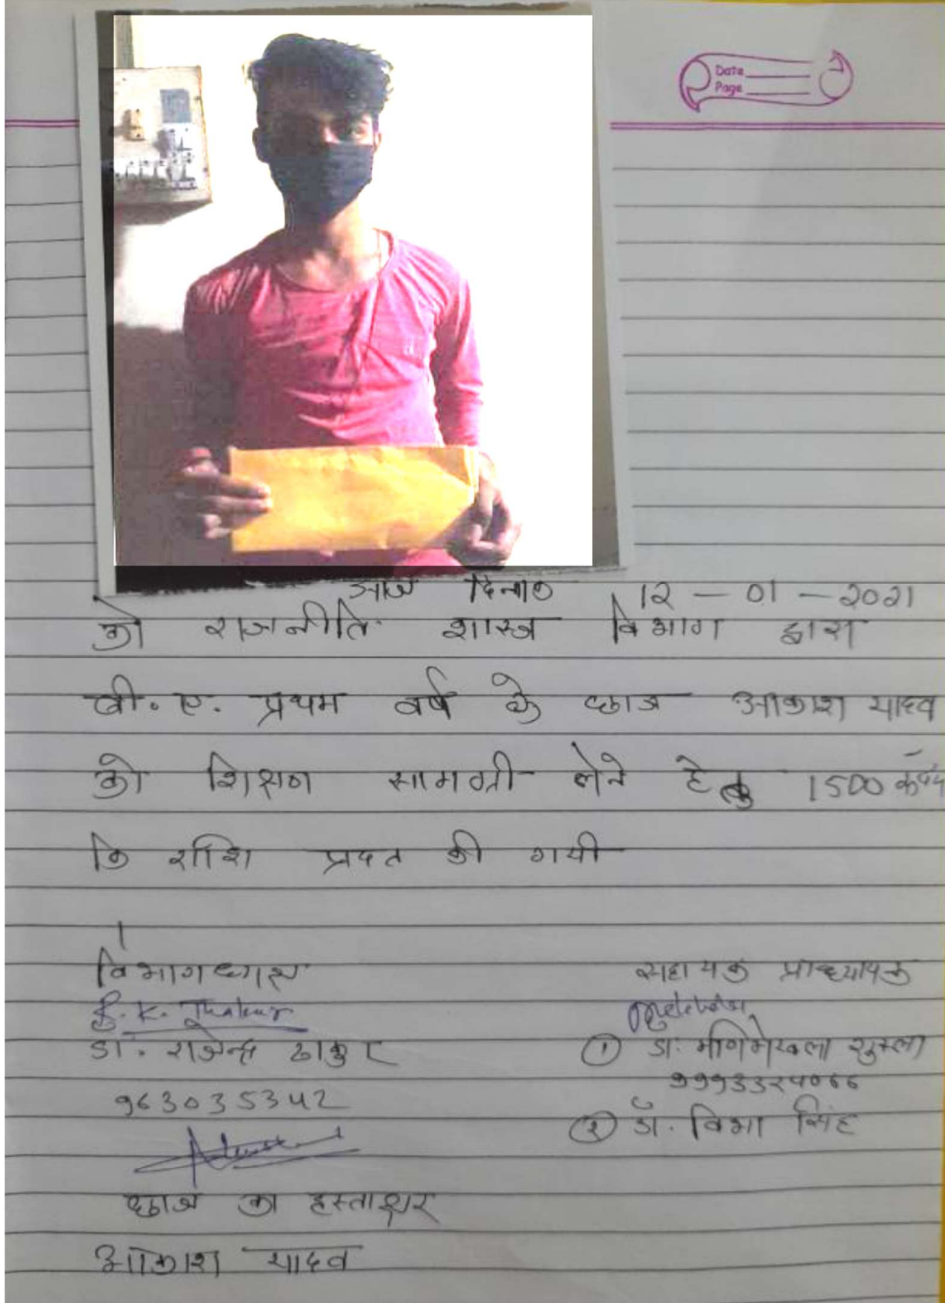 Date
Page
आज दिनांक 12-01-2021
को राजनीति शास्त्र विभाग द्वारा
बी. ए. प्रथम वर्ष के छात्र आकाश यादव
को शिक्षण सामग्री लेने हेतु 1500 रुपये
कि राशि प्रदत की गयी
विभागध्यक्ष
R. K. Thakur
डा. राजेन्द्र ठाकुर
963035342
छात्र का हस्ताक्षर
आकाश यादव
सहायक प्राध्यापक
① डा. मणिमेखला शुक्ला
② डॉ. विभा सिंह